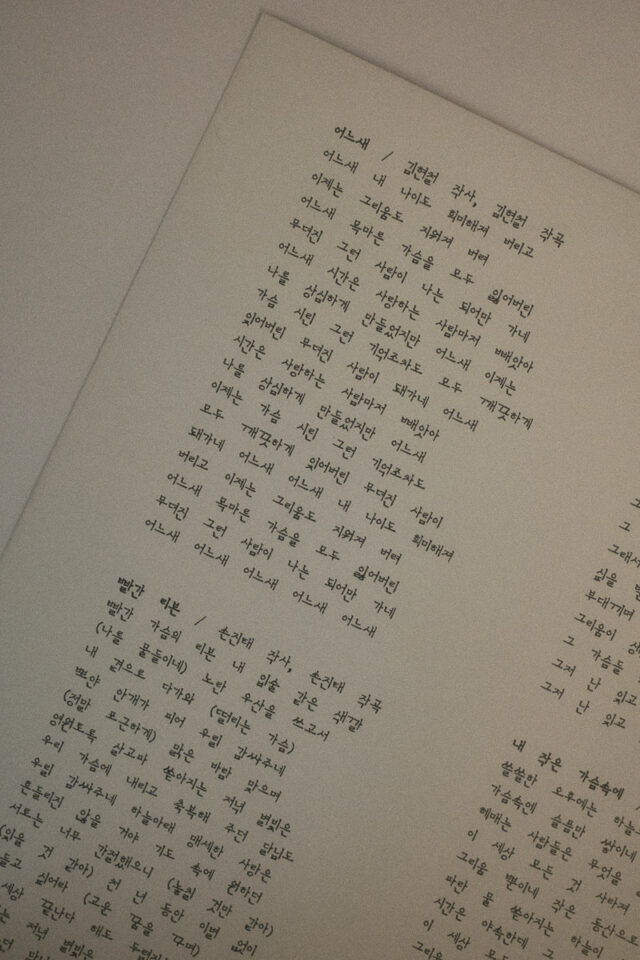 어느새 / 김현철 작사, 김현철 작곡
어느새 내 나이도 희미해져 버리고
이제는 그리움도 지워져 버려
어느새 목마른 가슴을 모두 잃어버린
무뎌진 그런 사람이 나는 되어만 가네
어느새 시간은 사랑하는 사람마저 빼앗아
나를 상심하게 만들었지만 어느새 이제는
가슴 시린 그런 기억조차도 모두 깨끗하게
잊어버린 무뎌진 사람이 돼가네 어느새
시간은 사랑하는 사람마저 빼앗아
나를 상심하게 만들었지만 어느새
이제는 가슴 시린 그런 기억조차도
모두 깨끗하게 잊어버린 무뎌진 사람이
돼가네 어느새 어느새 내 나이도 희미해져
버리고 이제는 그리움도 지워져 버려
어느새 목마른 가슴을 모두 잃어버린
무뎌진 그런 사람이 나는 되어만 가네
어느새 어느새 어느새 어느새 어느새
빨간 리본 / 손진태 작사, 손진태 작곡
빨간 가슴의 리본 내 입술 같은 색깔
(나를 물들이네) 노란 우산을 쓰고서
내 곁으로 다가와 (떨리는 가슴)
뽀얀 안개가 피어 우릴 감싸주네
(정말 포근하게) 맑은 바람 맞으며
영원토록 살고파 쏟아지는 저녁 별빛은
우리 가슴에 내리고 축복해 주던 달님도
우릴 감싸주네 하늘아래 맹세한 사랑은
흔들리지 않을 거야 기도 속에 원하던
서로는 너무 간절했으니 (놓칠 것만 같아)
(있을 것 같아) 천 년 동안 이별 없이
싶어라 (고운 꿈을 꾸며)
세상 끝난다 해도
저녁 별빛은
그
그
그래서
삶을
부대끼며
그리움이
그 가슴을
그저 난 잊고
그저 난 잊고
내 작은 가슴속에 /
쓸쓸한 오후에는 하늘
가슴속엔 슬픔만 쌓이네
헤매는 사람들은 무엇을
이 세상 모든 것 사라져
그리움 뿐이네 작은 동산으로
파란 물 쏟아지는 하늘이
시간은 야속한데 그
이 세상 모든
그리움